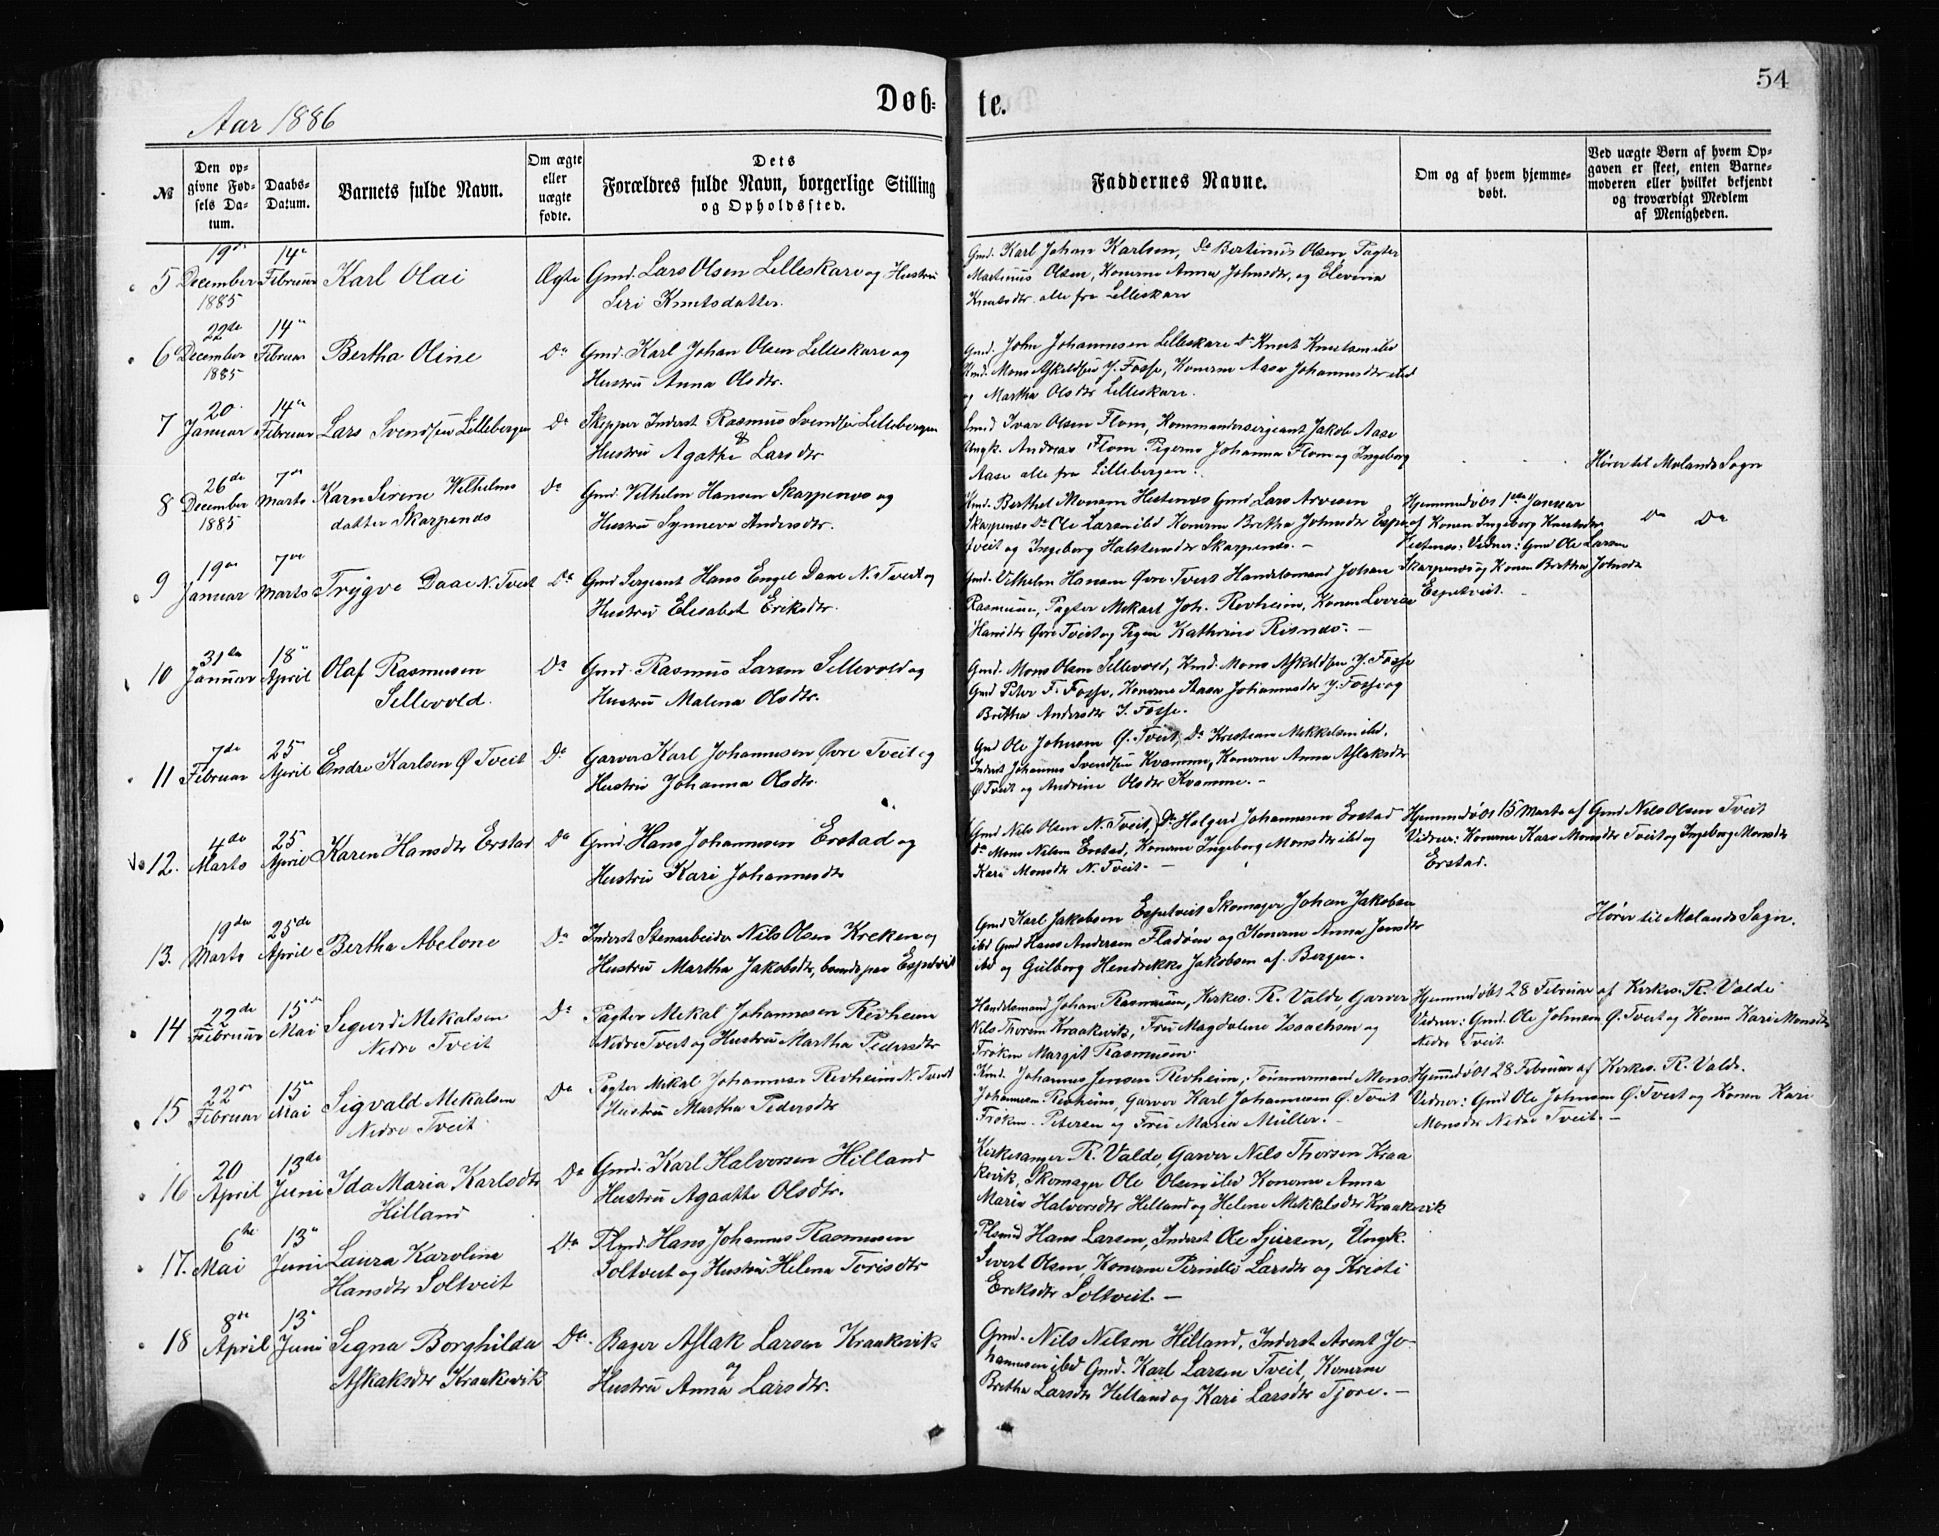 54
Døb-
te.
Aar 1886
№
Den op-
givne Fød-
sels Da-
tum.
Daabs-
Datum.
Barnets fulde Navn.
Om ægte
eller
uægte
fødte.
Dets
Forældres fulde Navn, borgerlige Stilling
og Opholdssted.
Faddernes Navne.
Om og af hvem hjemme-
døbt.
Ved uægte Børn af hvem Op-
gaven er skeet, enten Barne-
moderen eller hvilket bekjendt
og troværdigt Medlem
af Menigheden.
5
19de
December
1885
14de
Februar
Karl Olai
Ægte
Gmd. Lars Olsen Lilleskare og Hustru
Siri Knutsdatter.
Gmd. Karl Johan Karlsen, Do Bertinius Olsen, Pagter
Martinus Olsen, Konerne Anna Johnsdtr, og Elevina
Knutsdtr. alle fra Lilleskare
6
22de
December
1885
14de
Februar
Bertha Oline
Do
Gmd. Karl Johan Olsen Lilleskare og
Hustru Anna Olsdtr.
Gmd. John Johannesen Lilleskare Do Knut Knutsen ibd
Kmd. Mons Askeldsen Y. Fosse, Konerne Aasa Johannesdtr ibd
og Martha Olsdtr Lilleskare.
7
20
Januar
14de
Februar
Lars Svendsen Lillebergen
Do
Skipper Inderst Rasmus Svendsen Lillebergen
&
Hustru Agathe Larsdtr
Smed Ivar Olsen Flom, Kommandersergeant Jakob Aase
Ungk. Andreas Flom Pigerne Johanna Flom og Ingeborg
Aase alle fra Lillebergen.
Hører til Molands Sogn
8
26de
December
1885
7de
Marts
Karn Sirene Wilhelms
datter Skarpenes
Do
Gmd. Vilhelm Hansen Skarpenes og
Hustru Synneva Andersdtr.
Kmd. Berthel Monsen Hestenes Gmd Lars Arvesen
Skarpenes Do Ole Larsen ibd Konerne Bretha Johnsdtr Espe-
tveit og Ingeborg Halsteinsdtr Skarpenes. —
Hjemmedøbt 1ste Januar
af Konen Ingeborg Knutsdtr
Hestenes: Vidner: Gmd Ole Larsen
Skarpenes og Konen Bretha Johnsdtr
Espetveit.
Do Do
9
19de
Januar
7de
Marts
Trygve Daae N. Tveit
Do
Gmd Sergeant Hans Engel Daae N. Tveit og
Hustru Elisabet Eriksdtr.
Gmd. Vilhelm Hansen Øvre Tveit Handelsmand Johan
Rasmussen, Pagter Mikael Joh. Revheim, Konen Lovise
Hansdtr Øvre Tveit og Pigen Kathrine Risnes. —
10
31te
Januar
18de
April
Olaf Rasmusen
Sellevold.
Do
Gmd. Rasmus Larsen Sellevold og
Hustru Malena Olsdtr.
Gmd. Mons Olsen Sellevold, Kmd. Mons Askeldsen Y. Fosse
Gmd Peter F. Fosse, Konerne Aasa Johannesdtr Y. Fosse og
Bretha Andersdtr I. Fosse.
11
7de
Februar
25
April
Endre Karlsen Ø Tveit
Do
Garver Karl Johannesen Øvre Tveit og
Hustru Johanna Olsdtr.
Gmd Ole Johnsen Ø. Tveit, Do Kristian Mikkelsen ibd.
Inderst Johannes Svendsen Kvamme, Konerne Anna Aslaksdtr
Ø Tveit og Andrine Olsdtr Kvamme. —
12.
4de
Marts
25
April
Karen Hansdtr Erstad
Do
Gmd. Hans Johannesen Erstad og
Hustru Kari Johannesdtr
Gmd Nils Olsen N. Tveit, Do Holgerd Johannesen Erstad
Do Mons Nilsen Erstad, Konerne Ingeborg Monsdtr ibd og
Kari Monsdtr N. Tveit —
Hjemmedøbt 15 Marts af Gmd Nils Olsen Tveit
Vidner: Konerne Kari Monsdtr Tveit og Ingeborg Monsdtr
Erstad.
13.
19de
Marts
25de
April
Bertha Abelone
Do
Inderst Stenarbeider Nils Olsen Kreken og
Hustru Martha Jakobsdtr, boende paa Espetveit
Gmd Karl Jakobsen Espetveit Skomager Johan Jakobsen
ibd Gmd Hans Andersen Fladøen og Konerne Anna Jonsdtr
ibd og Gulborg Hendrikke Jakobsen af Bergen.
Hører til Molands Sogn.
14
22de
Februar
15de
Mai
Sigurd Mekalsen
Nedre Tveit
Do
Pagter Mekal Johannesen Revheim
Nedre Tveit og Hustru Martha Pedersdtr
Handelsmand Johan Rasmusen, Kirkes. R. Valde, Garver
Nils Thorsen Kraakevik, Fru Magdalene Isaachsen og
Frøken Margit Rasmusen
Hjemmedøbt 28 Februar af Kirkes. R. Valde
Vidner: Gmd. Ole Johnsen Ø. Tveit og Konen Kari Monsdtr
Nedre Tveit
15
22de
Februar
15de
Mai
Sigvald Mekalsen
Nedre Tveit
Do
Pagter Mikal Johannesen Revheim N. Tveit
Hustru Martha Pedersdtr
Kmd. Johannes Jensen Revheim, Tømmermand Mons
Johannesen Revheim, Garver Karl Johannesen Ø. Tveit
Frøken Petersen og Fru Maria Müller. —
Hjemmedøbt 28 Februar af Kirkes. R. Valde.
Vidner: Gmd Ole Johnsen Ø. Tveit og Konen Kari
Monsdtr Nedre Tveit. —
16
20
April
13de
Juni
Ida Maria Karlsdtr
Hilland
Do
Gmd. Karl Halvorsen Hilland
Hustru Agaathe Olsdtr.
Kirkesanger R. Valde, Garver Nils Thorsen Kraa
kevik, Skomager Ole Olsen ibd Konerne Anna
Maria Halvorsdtr Hilland og Helene Mikkelsdtr Kraakevik
17.
6te
Mai
13de
Juni
Laura Karolina
Hansdtr Soltveit
Do
Plmd. Hans Johannes Rasmusen
Soltveit og Hustru Helena Torisdtr
Plsmd Hans Larsen, Inderst Ole Sjursen, Ungk.
Sivert Olsen, Konerne Pernille Larsdtr og Kristi
Eriksdtr Soltveit. —
18
8de
April
13de
Juni
Signa Borghilda
Aslaksdtr Kraakevik
Do
Bager Aslak Larsen Kraakevik
og
Hustru Anna Larsdtr.
Gmd. Nils Nilsen Hilland, Inderst Arent Jo-
hannesen ibd Gmd. Karl Larsen Tveit, Konerne
Bretha Larsdtr Hilland og Kari Larsdtr Tjore. —